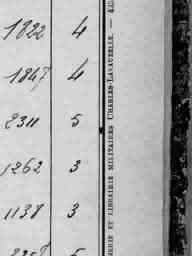 1822 4
1847 4
2311 5
1262 3
1138 3
5
ERIE ET LIBRAIRIE MILITAIRES CHARLES-LAVAUZELLE. —